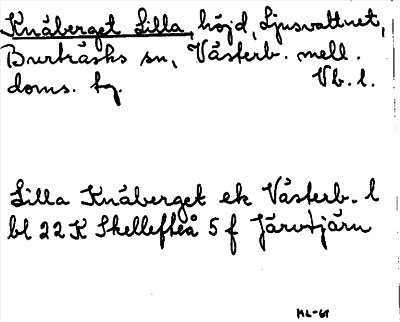 Knåberget Lilla, höjd, Ljusvattnet,
Burträsks sn, Västerb. mell.
doms. tg. Vb. l.
Lilla Knåberget ek Västerb. l
bl 22 K Skellefteå 5 f Järvtjärn
ML-61